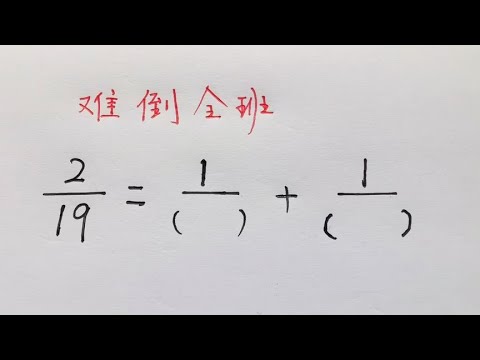 难倒全班
2/19 = 1/( ) + 1/( )